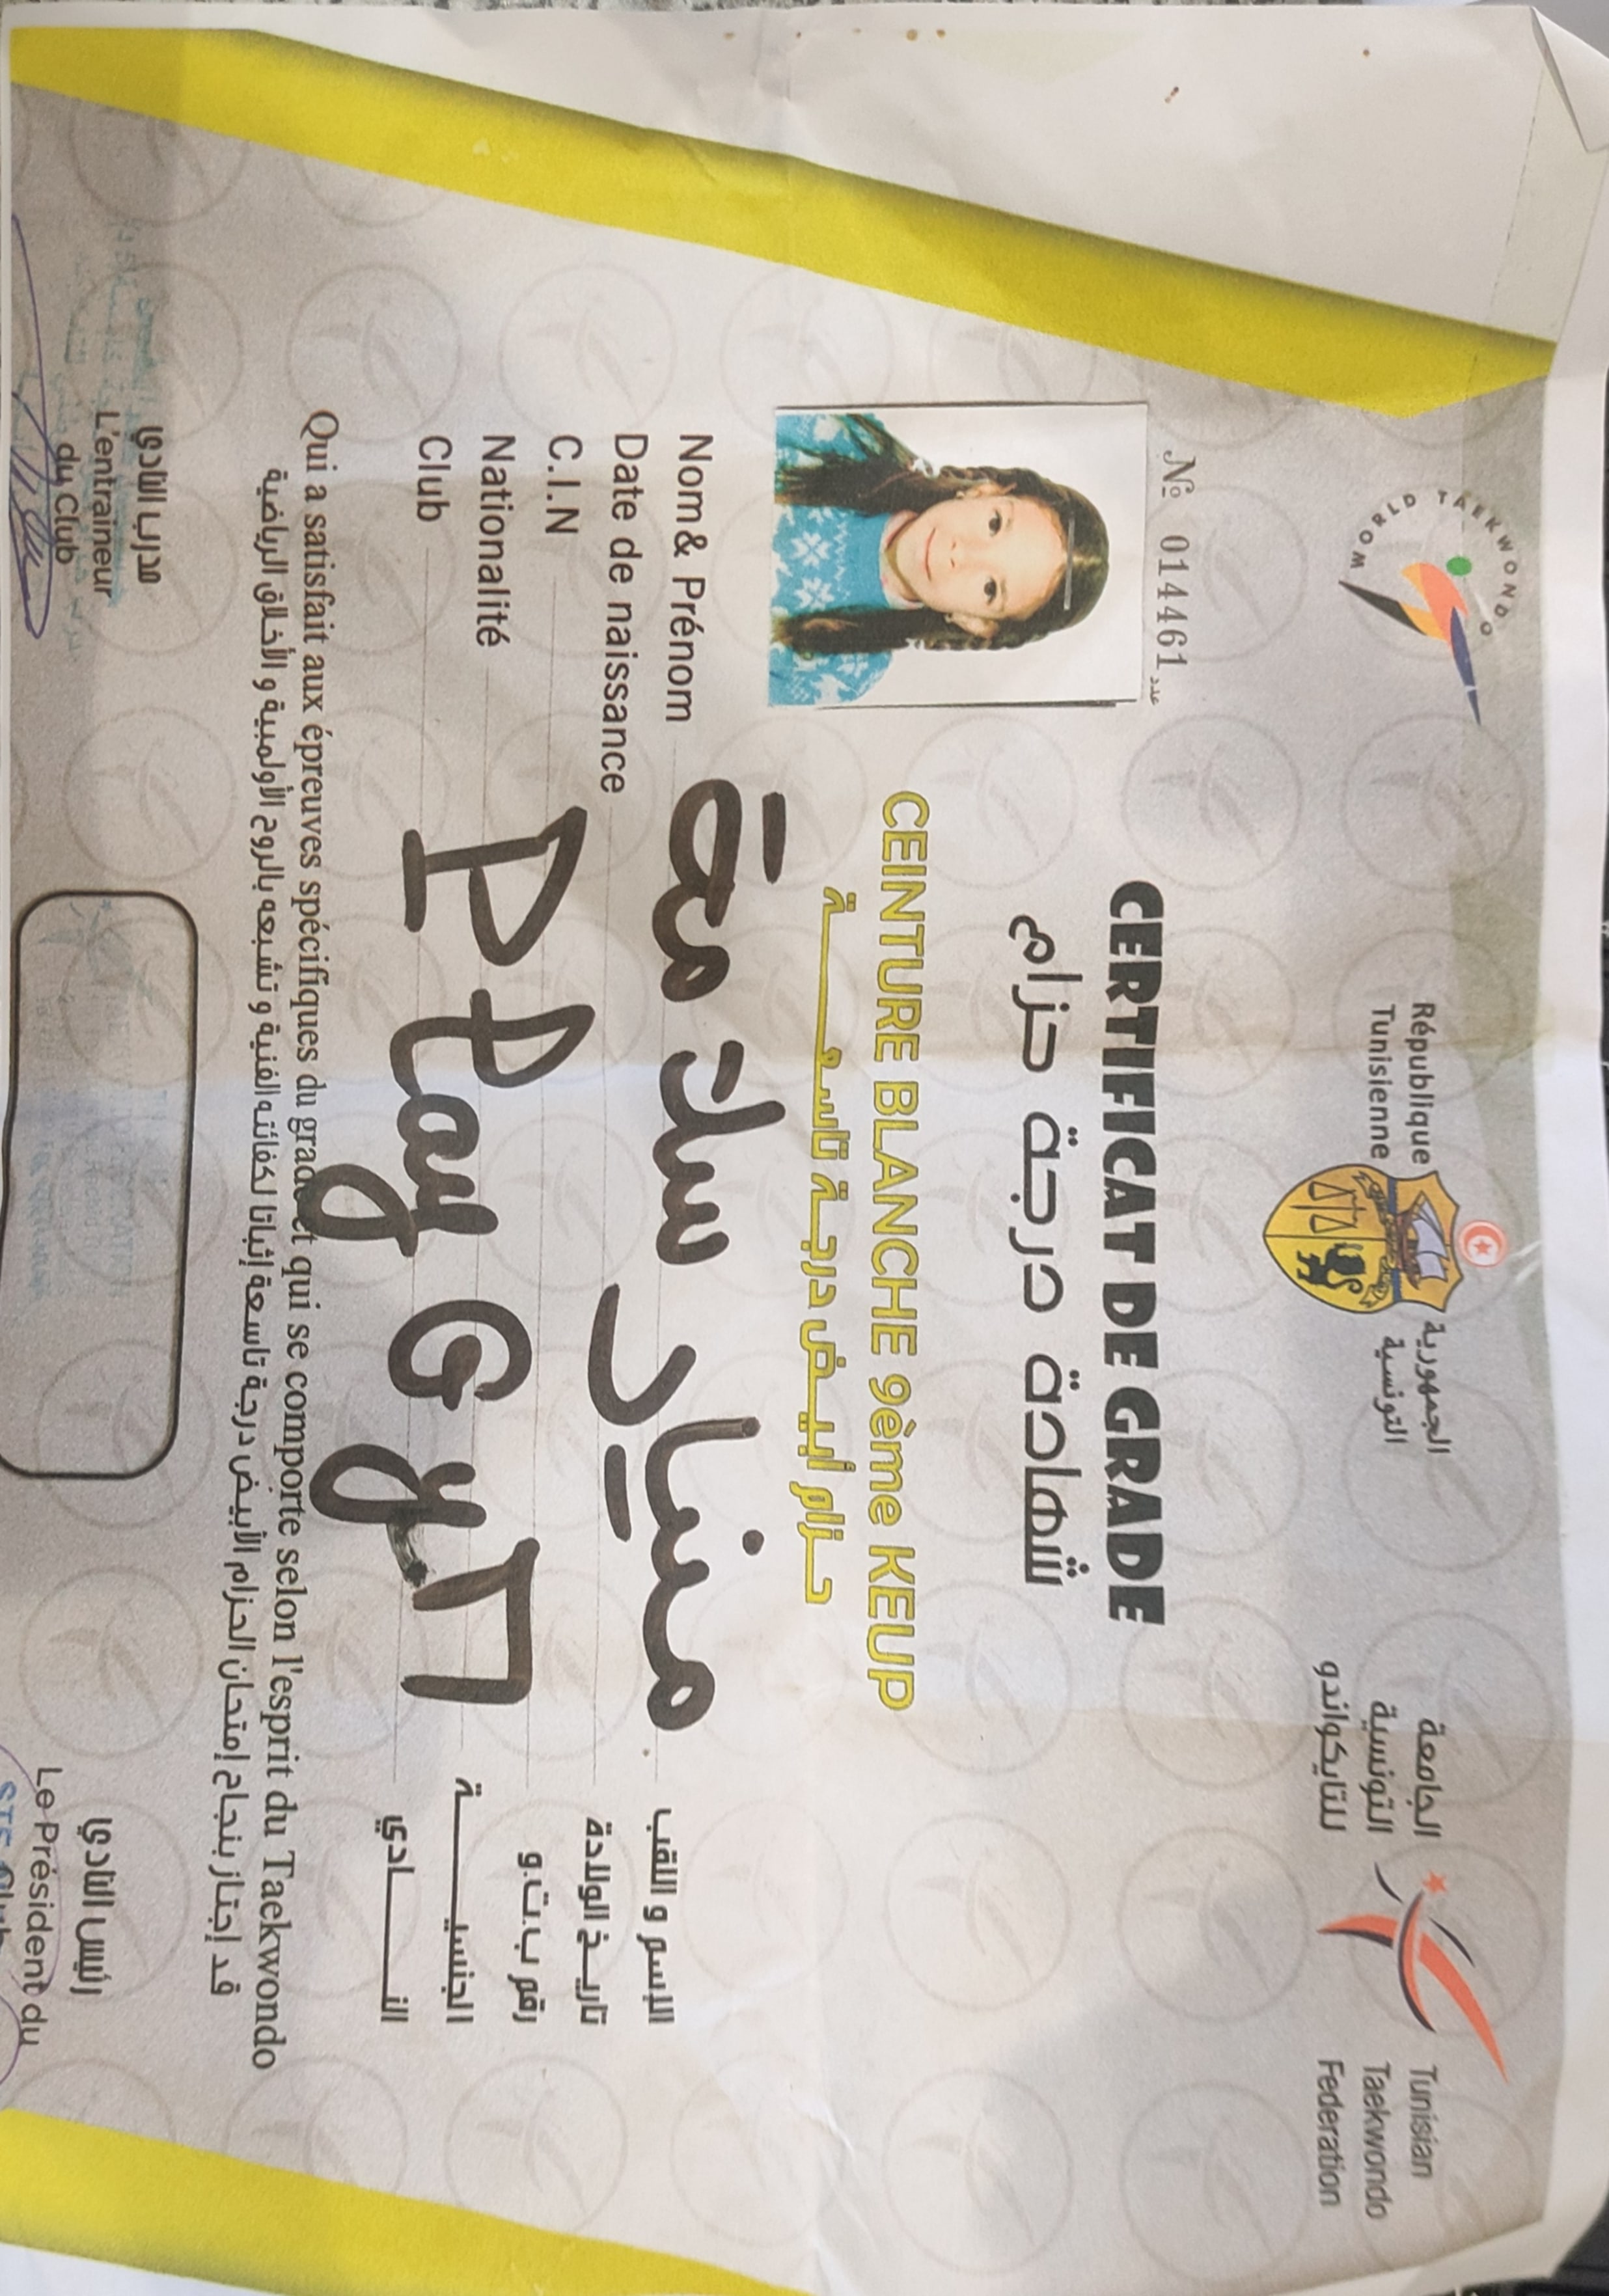 WORLD TAEKWONDO
République
Tunisienne
الجمهورية
التونسية
الجامعة
التونسية
للتايكواندو
Tunisian
Taekwondo
Federation
№ 014461 عدد
CERTIFICAT DE GRADE
شهادة درجة حزام
CEINTURE BLANCHE 9ème KEUP
حزام أبيض درجة تاسعة
Nom & Prénom
سلامة
الإسم و اللقب
Date de naissance
تاريخ الولادة
C.I.N
رقم ب.ت.و
Nationalité
الجنسية
Club
Play Gym
النادي
Qui a satisfait aux épreuves spécifiques du grade et qui se comporte selon l'esprit du Taekwondo
قد إجتاز بنجاح إمتحان الحزام الأبيض درجة تاسعة إثباتا لكفائته الفنية و تشبعه بالروح الأولمبية و الأخلاق الرياضية
مدرب النادي
L'entraineur
du Club
رئيس النادي
Le Président du